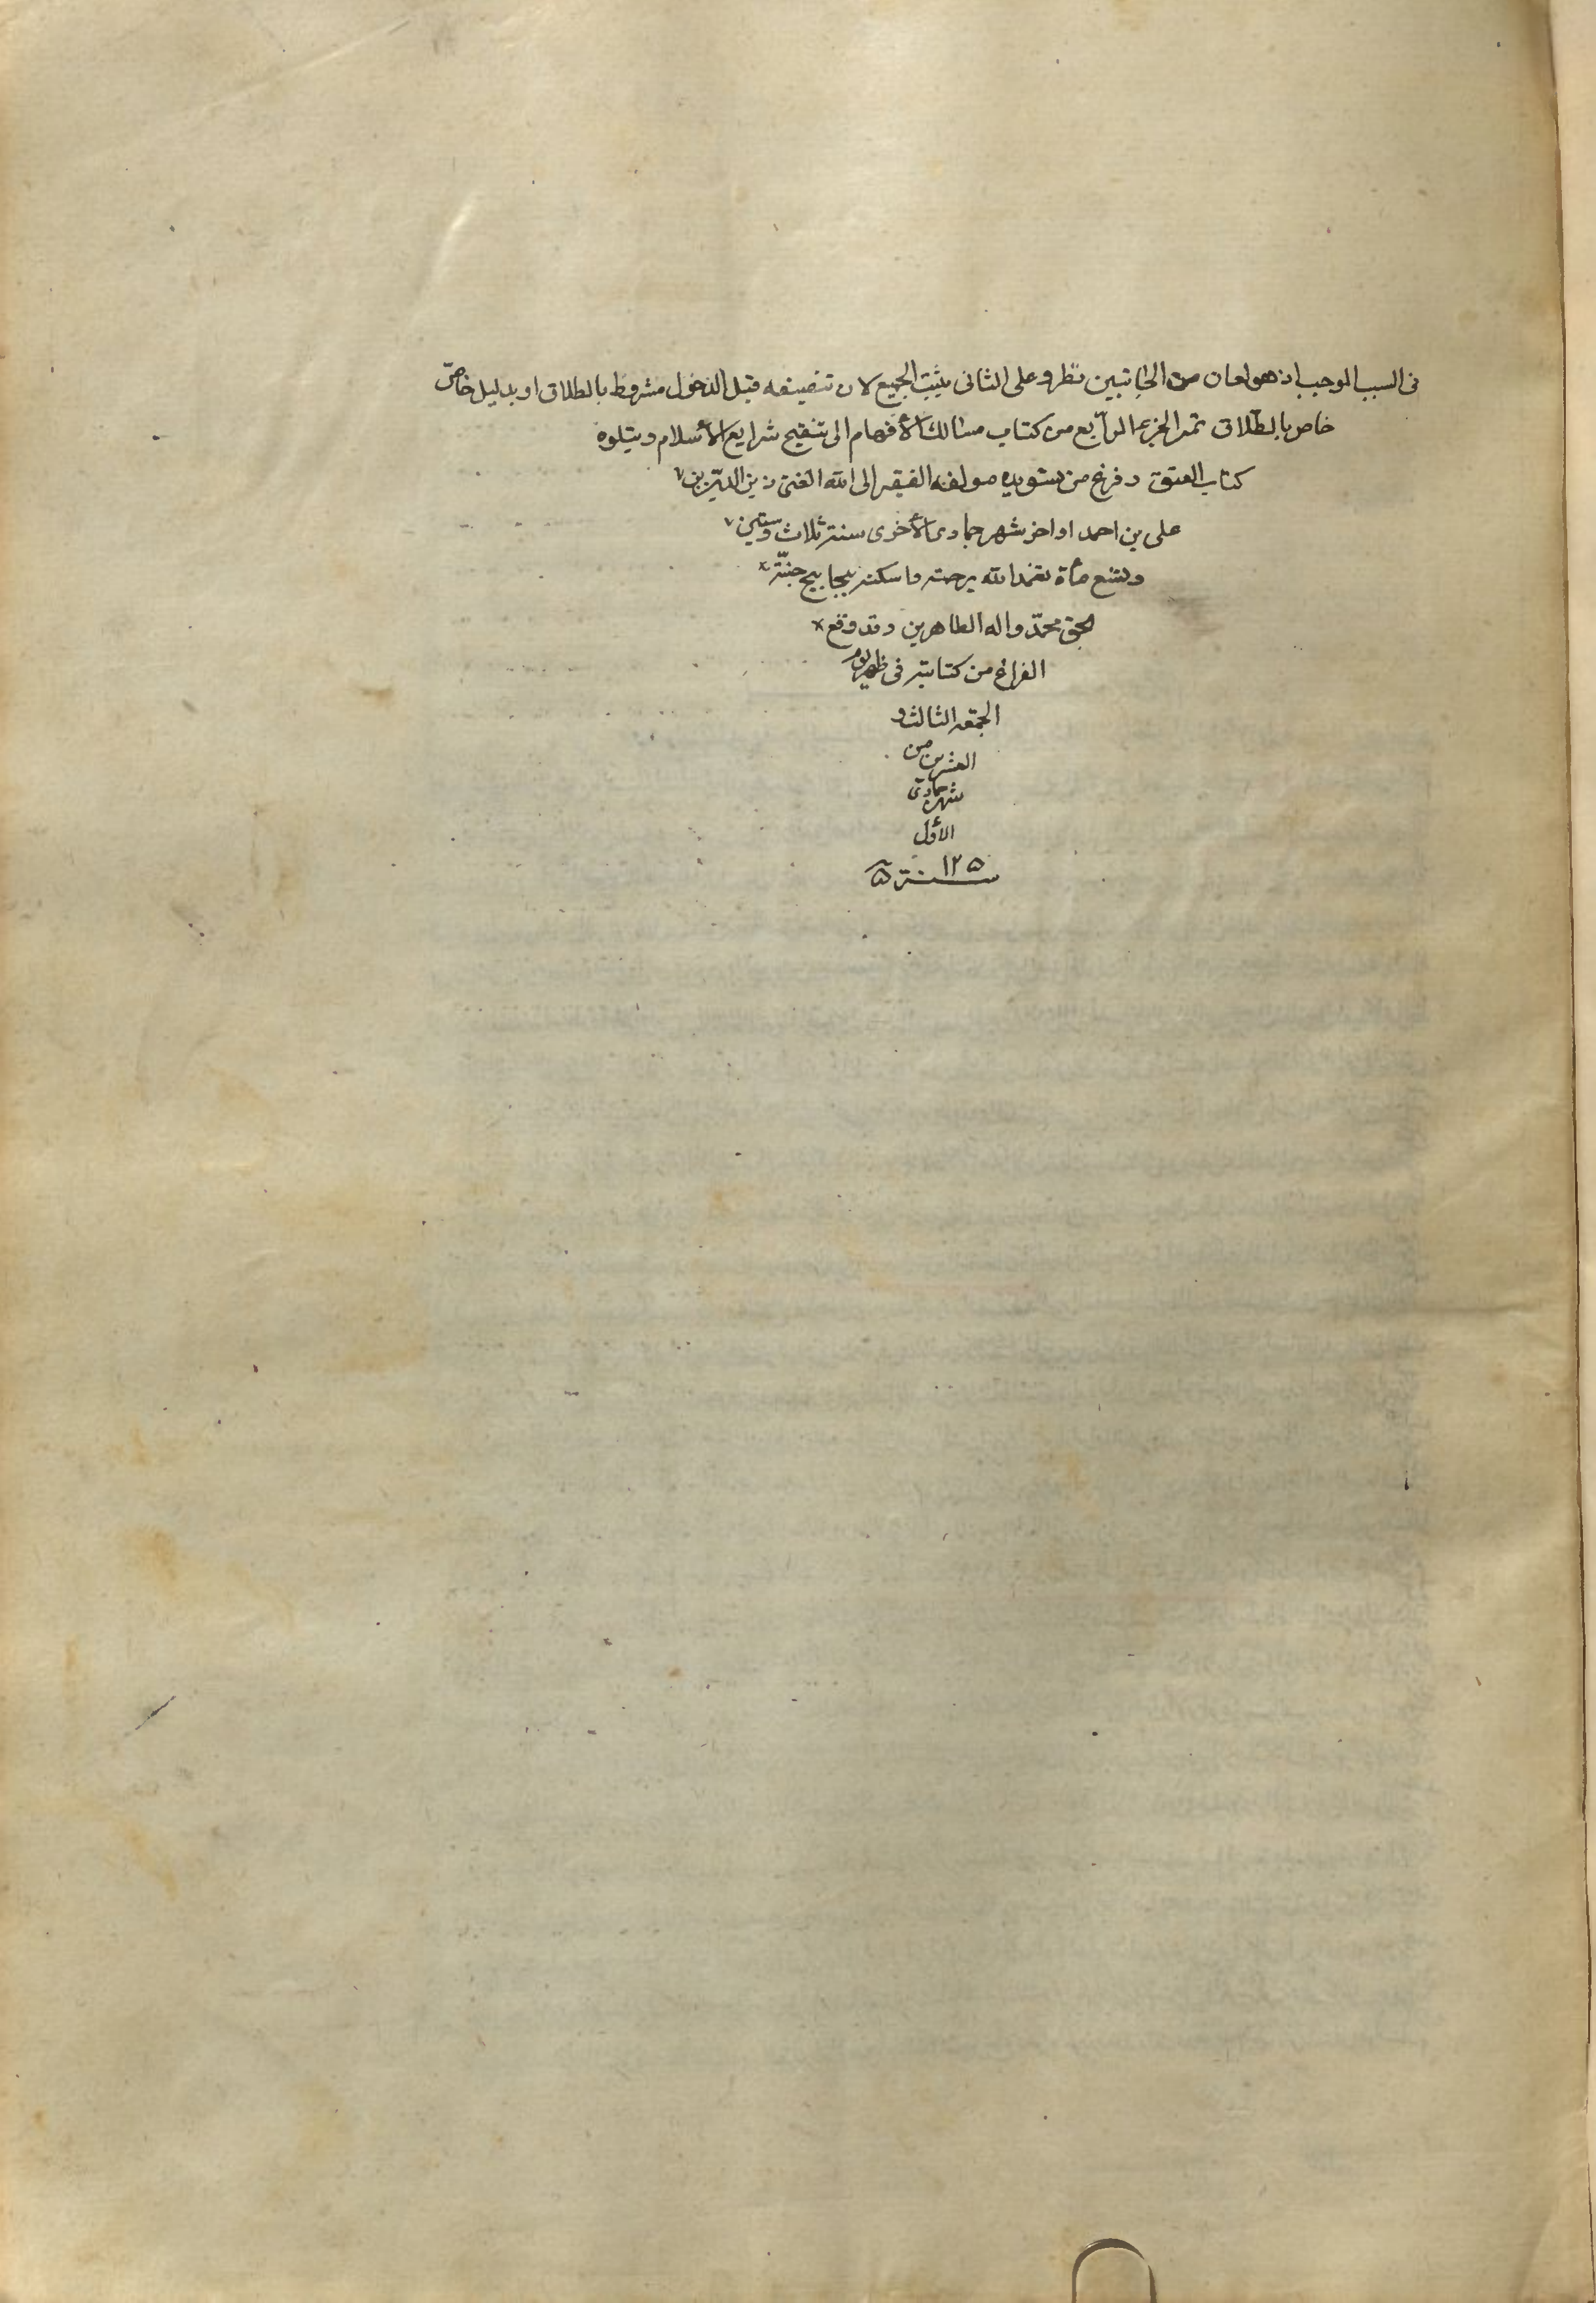 فى السبب الموجب اذ هو لعان من الجانبين نظر وعلى الثانى يثبت الجميع لان تنصيفه قبل الدخول مشروط بالطلاق او بدليل خاصّ
خاص بالطلاق تم الجزء الرابع من كتاب مسالك الأفهام الى تنقيح شرايع الأسلام ويتلوه
كتاب العتق وفرغ من تسويده مولفه الفقير الى الله الغنى زين الدين بن
على بن احمد اواخر شهر جمادى الأخرى سنة ثلاث وستين
وتسع مأة تغمد الله برحمته واسكنه بحابيح جنّته
بحق محمّد واله الطاهرين وقد وقع
الفراغ من كتابته فى ظهر يوم
الجمعه الثالث و
العشرين من
شهر جمادى
الأول
سنة ١٢٥